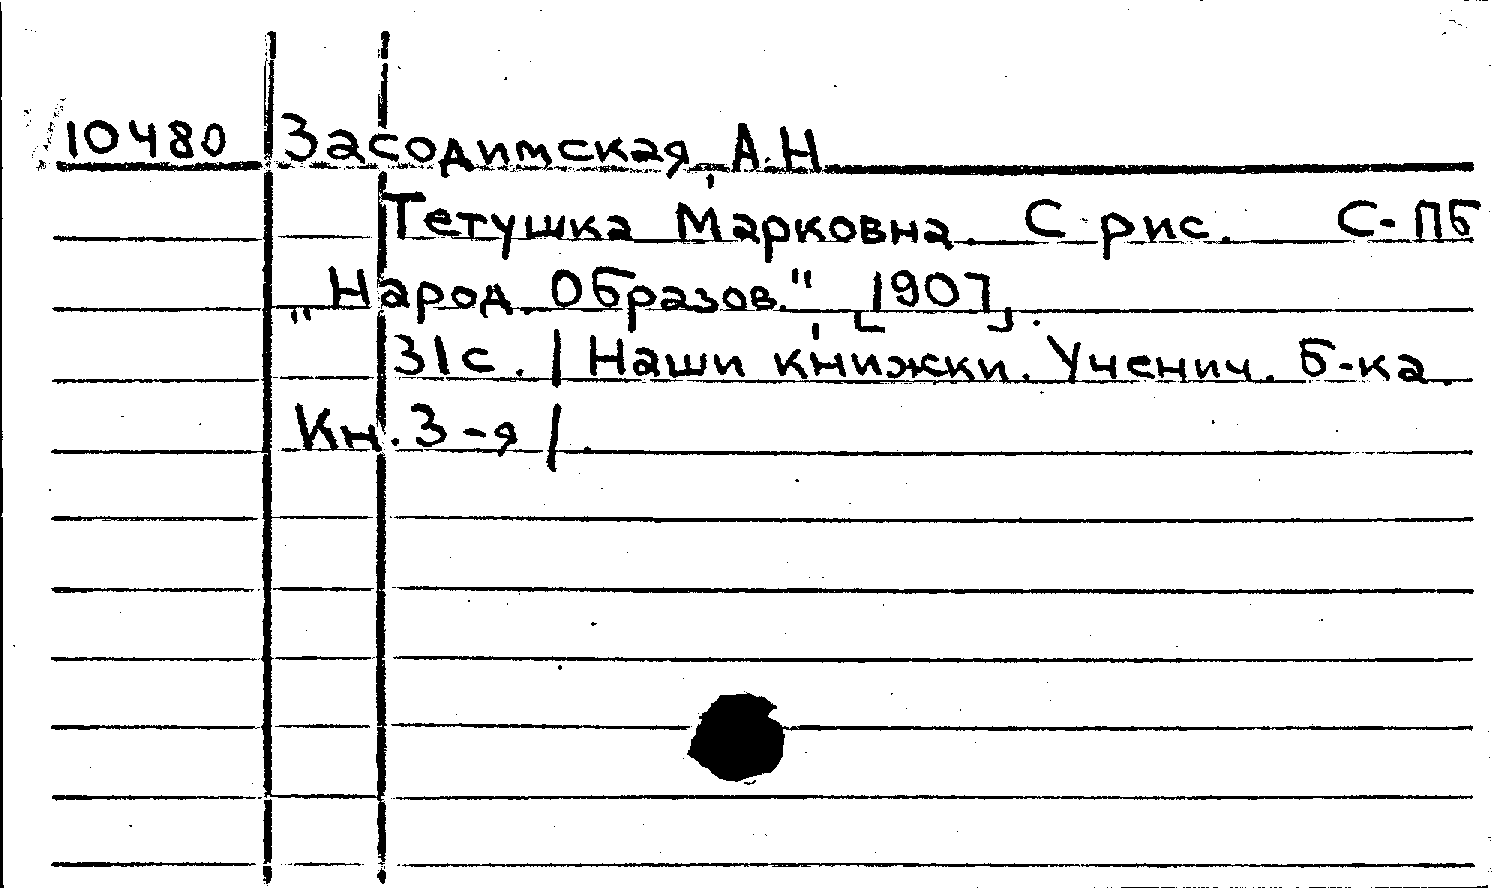 10480 Засодимская, А.Н
Тетушка Марковна. С рис. С-ПБ
"Народ. Образов.", [1907].
31с. / Наши книжки. Ученич. Б-ка.
Кн. 3-я /.